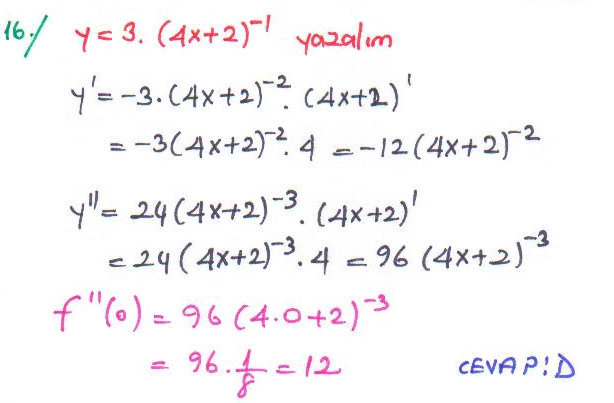 16./ y = 3. (4x+2)⁻¹ yazalım
y' = -3.(4x+2)⁻². (4x+2)'
= -3(4x+2)⁻². 4 = -12(4x+2)⁻²
y'' = 24(4x+2)⁻³. (4x+2)'
= 24(4x+2)⁻³. 4 = 96 (4x+2)⁻³
f''(0) = 96 (4.0+2)⁻³
= 96. 1/8 = 12 CEVAP: D